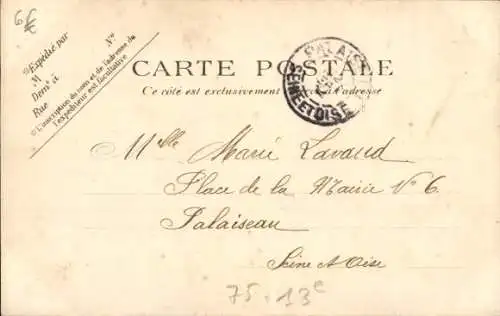 6€
Expédié par
M
Demt à
Rue N°
L'inscription du nom et de l'adresse de
l'expéditeur est facultative
CARTE POSTALE
Ce côté est exclusivement à l'adresse
PALAISEAU
SEINE-ET-OISE
Mlle Marie Lavaud
Place de la Mairie N° 6
Palaiseau
Seine & Oise
75-13e